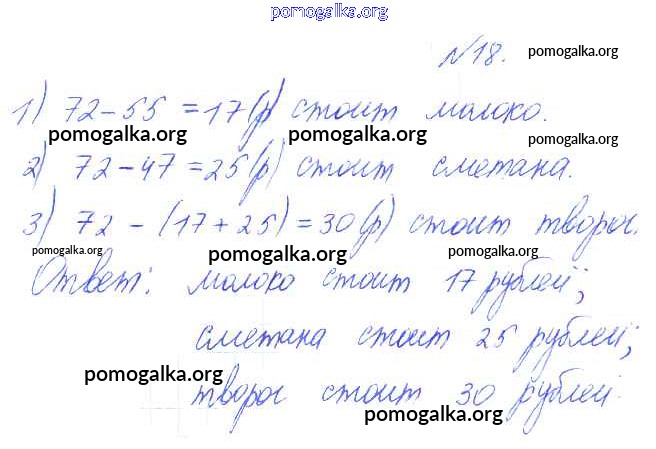 pomogalka.org
№18. pomogalka.org
1) 72-55=17(р) стоит молоко.
pomogalka.org pomogalka.org pomogalka.org
2) 72-47=25(р) стоит сметана.
pomogalka.org pomogalka.org
3) 72-(17+25)=30(р) стоит творог.
pomogalka.org pomogalka.org pomogalka.org
Ответ: молоко стоит 17 рублей;
pomogalka.org
сметана стоит 25 рублей;
pomogalka.org
творог стоит 30 рублей.
pomogalka.org